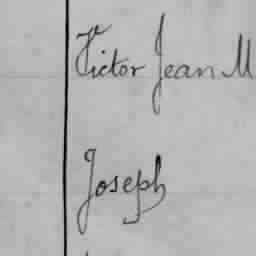 Victor Jean M
Joseph